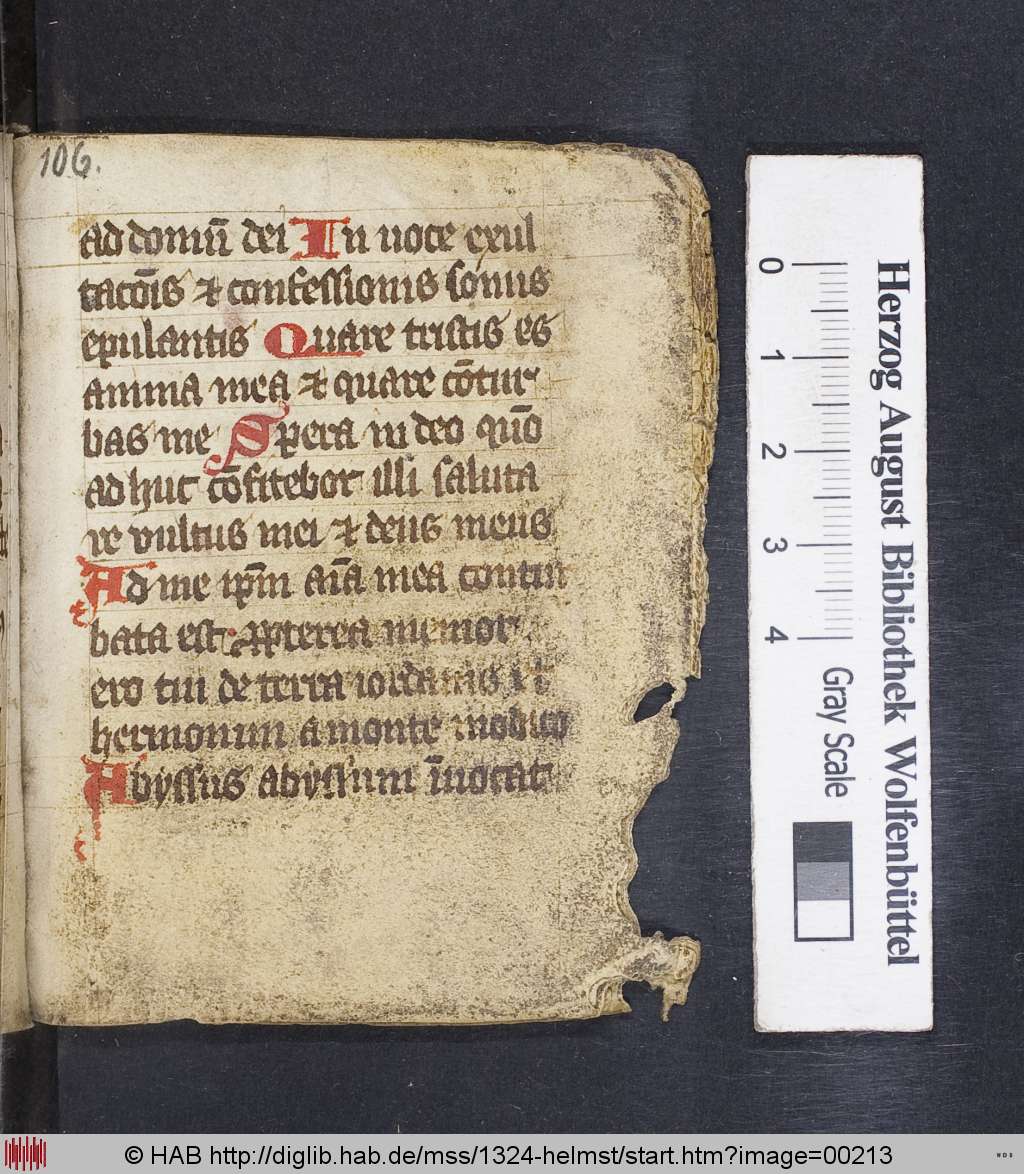 106.
ad domū dei In uoce exul
tacōis ⁊ confessionis sonus
epulantis Quare tristis es
anima mea ⁊ quare cōtur
bas me Spera in deo qūo
adhuc cōfitebor illi saluta
re vultus mei ⁊ deus meus
Ad me ip̄m aīa mea contur
bata est ꝓpterea memor
ero tui de terra iordanis et
hermonim a monte modico
Abyssus abyssum īuocat
0 1 2 3 4 Gray Scale
Herzog August Bibliothek Wolfenbüttel
© HAB http://diglib.hab.de/mss/1324-helmst/start.htm?image=00213